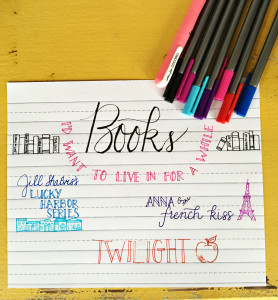 Books
I'D WANT TO LIVE IN FOR A WHILE
Jill Shalvis's
LUCKY
HARBOR
SERIES
ANNA and the
french kiss
TWILIGHT